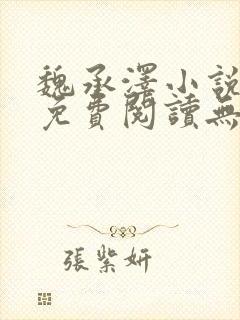 魏承澤小說
免費閱讀無
張紫妍